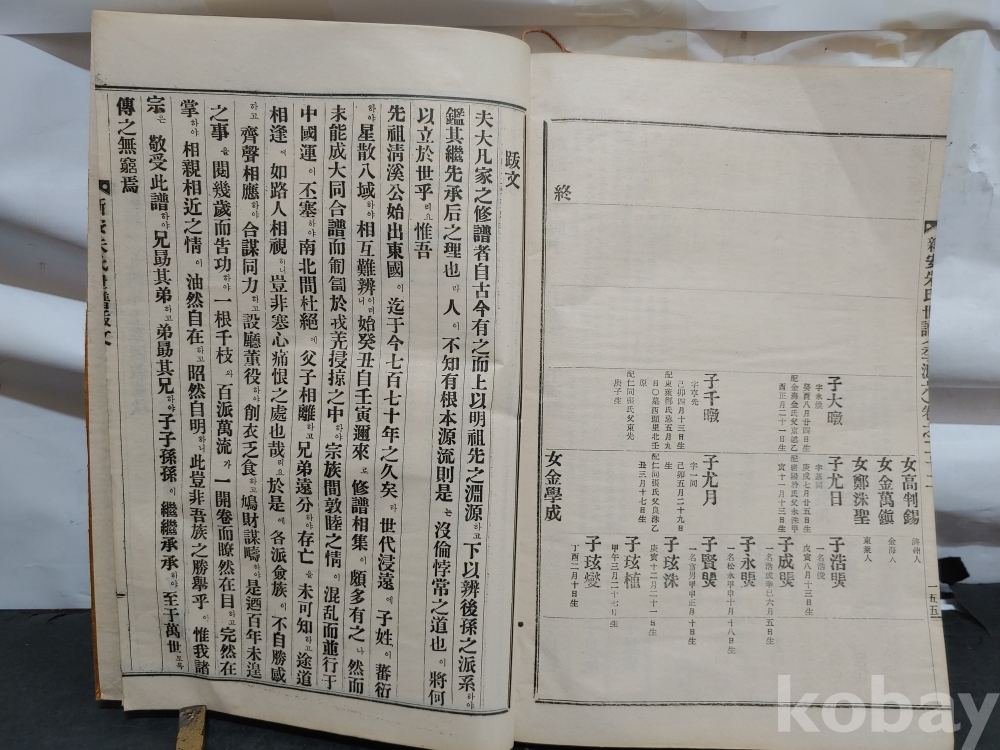 新安朱氏世譜
一五五
子大暾
字永煥
癸酉八月廿四日生
酉正月二十一日生
女高判錫
濟州人
女金萬鎭
金海人
女鄭洙聖
東萊人
子尤日
庚戌七月廿五日生
寅十一月十三日生
子浩龑
一名浩俊
戊寅八月十三日生
子成龑
子永龑
子賢龑
子千暾
字亨先
己卯四月十三日生
子尤月
字一同
己卯五月二十九日
生配仁同張氏父良洙乙
丑三月十七日生
配仁同張氏父東先
庚子生
子玹洙
庚寅十二月二十一日
生
子玹植
甲午三月二十七日生
子玹燮
丁酉二月十日生
女金學成
終
跋文
夫大凡家之修譜者自古今有之而上以明祖先之淵源하고下以辨後孫之派系하야
鑑其繼先承后之理也라人이不知有根本源流則是는沒倫悖常之道也이將何
以立於世乎리요惟吾
先祖淸溪公始出東國이迄于今七百七十年之久矣라世代浸遠에子姓이蕃衍
하야星散八域하야相互難辨이러니始癸丑自壬寅邇來로修譜相集이頗多有之나然而
未能成大同合譜而匍匐於戎羌侵掠之中하야宗族間敦睦之情이混乱而並行于
中國運이丕塞하야南北間杜絕에父子相離하고兄弟遠分하야存亡을未可知하고途道
相逢에如路人相視하니豈非寒心痛恨之處也哉리요於是에各派僉族이不自勝感
하고齊聲相應하야合謀同力하고設廳董役하야創衣乏食하고鳩財謀疇하야是迺百年未遑
之事을閱幾歲而告功하야一根千枝와百派萬流가一開卷而瞭然在目하고完然在
掌하야相親相近之情이油然自在하고昭然自明하니此豈非吾族之勝擧乎이惟我諸
宗은敬受此譜하야兄勗其弟하고弟勗其兄하야子子孫孫이繼繼承承하야至于萬世토록
傳之無窮焉
新安朱氏世譜跋文
kobay